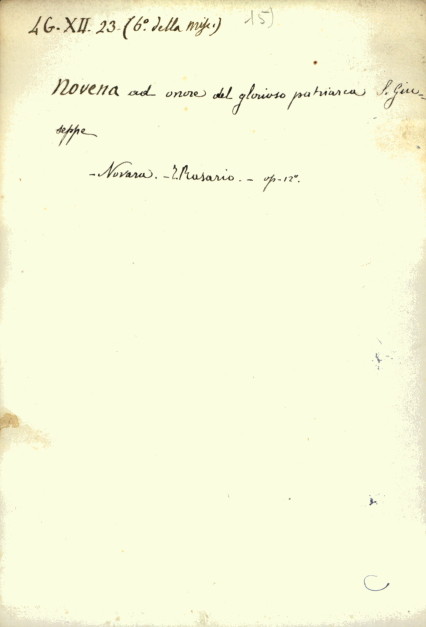 4G. XII. 23. (6° della misc.) 15)
Novena ad onore del glorioso patriarca S. Giu-
seppe
- Novara. - Rosario. - op. 12°.